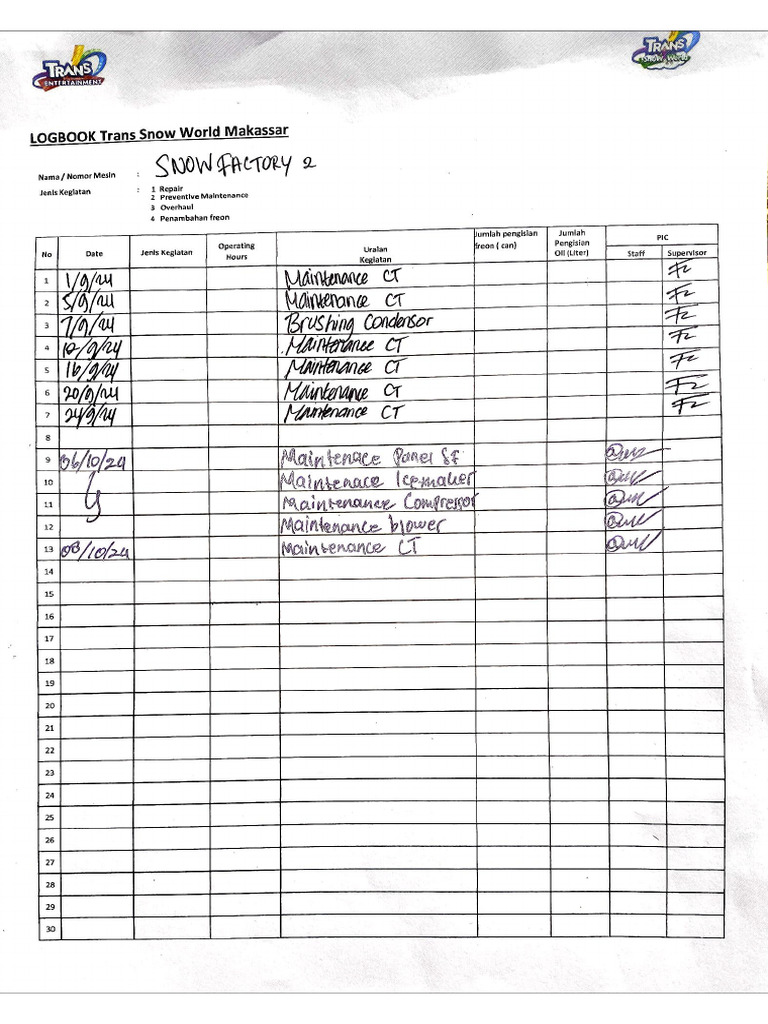 TRANS
ENTERTAINMENT
TRANS
SNOW WORLD
LOGBOOK Trans Snow World Makassar
Nama / Nomor Mesin : SNOW FACTORY 2
Jenis Kegiatan : 1 Repair
2 Preventive Maintenance
3 Overhaul
4 Penambahan freon
No Date Jenis Kegiatan Operating Hours Uraian Kegiatan Jumlah pengisian freon ( can) Jumlah Pengisian Oli (Liter) PIC
Staff Supervisor
1 1/9/24 Maintenance CT
2 5/9/24 Maintenance CT
3 7/9/24 Brushing Condensor
4 10/9/24 Maintenance CT
5 16/9/24 Maintenance CT
6 20/9/24 Maintenance CT
7 24/9/24 Maintenance CT
8
9 06/10/24 Maintenace Panel SF
10 Maintenace Icemaker
11 Maintenance Compressor
12 Maintenance blower
13 08/10/24 Maintenance CT
14
15
16
17
18
19
20
21
22
23
24
25
26
27
28
29
30